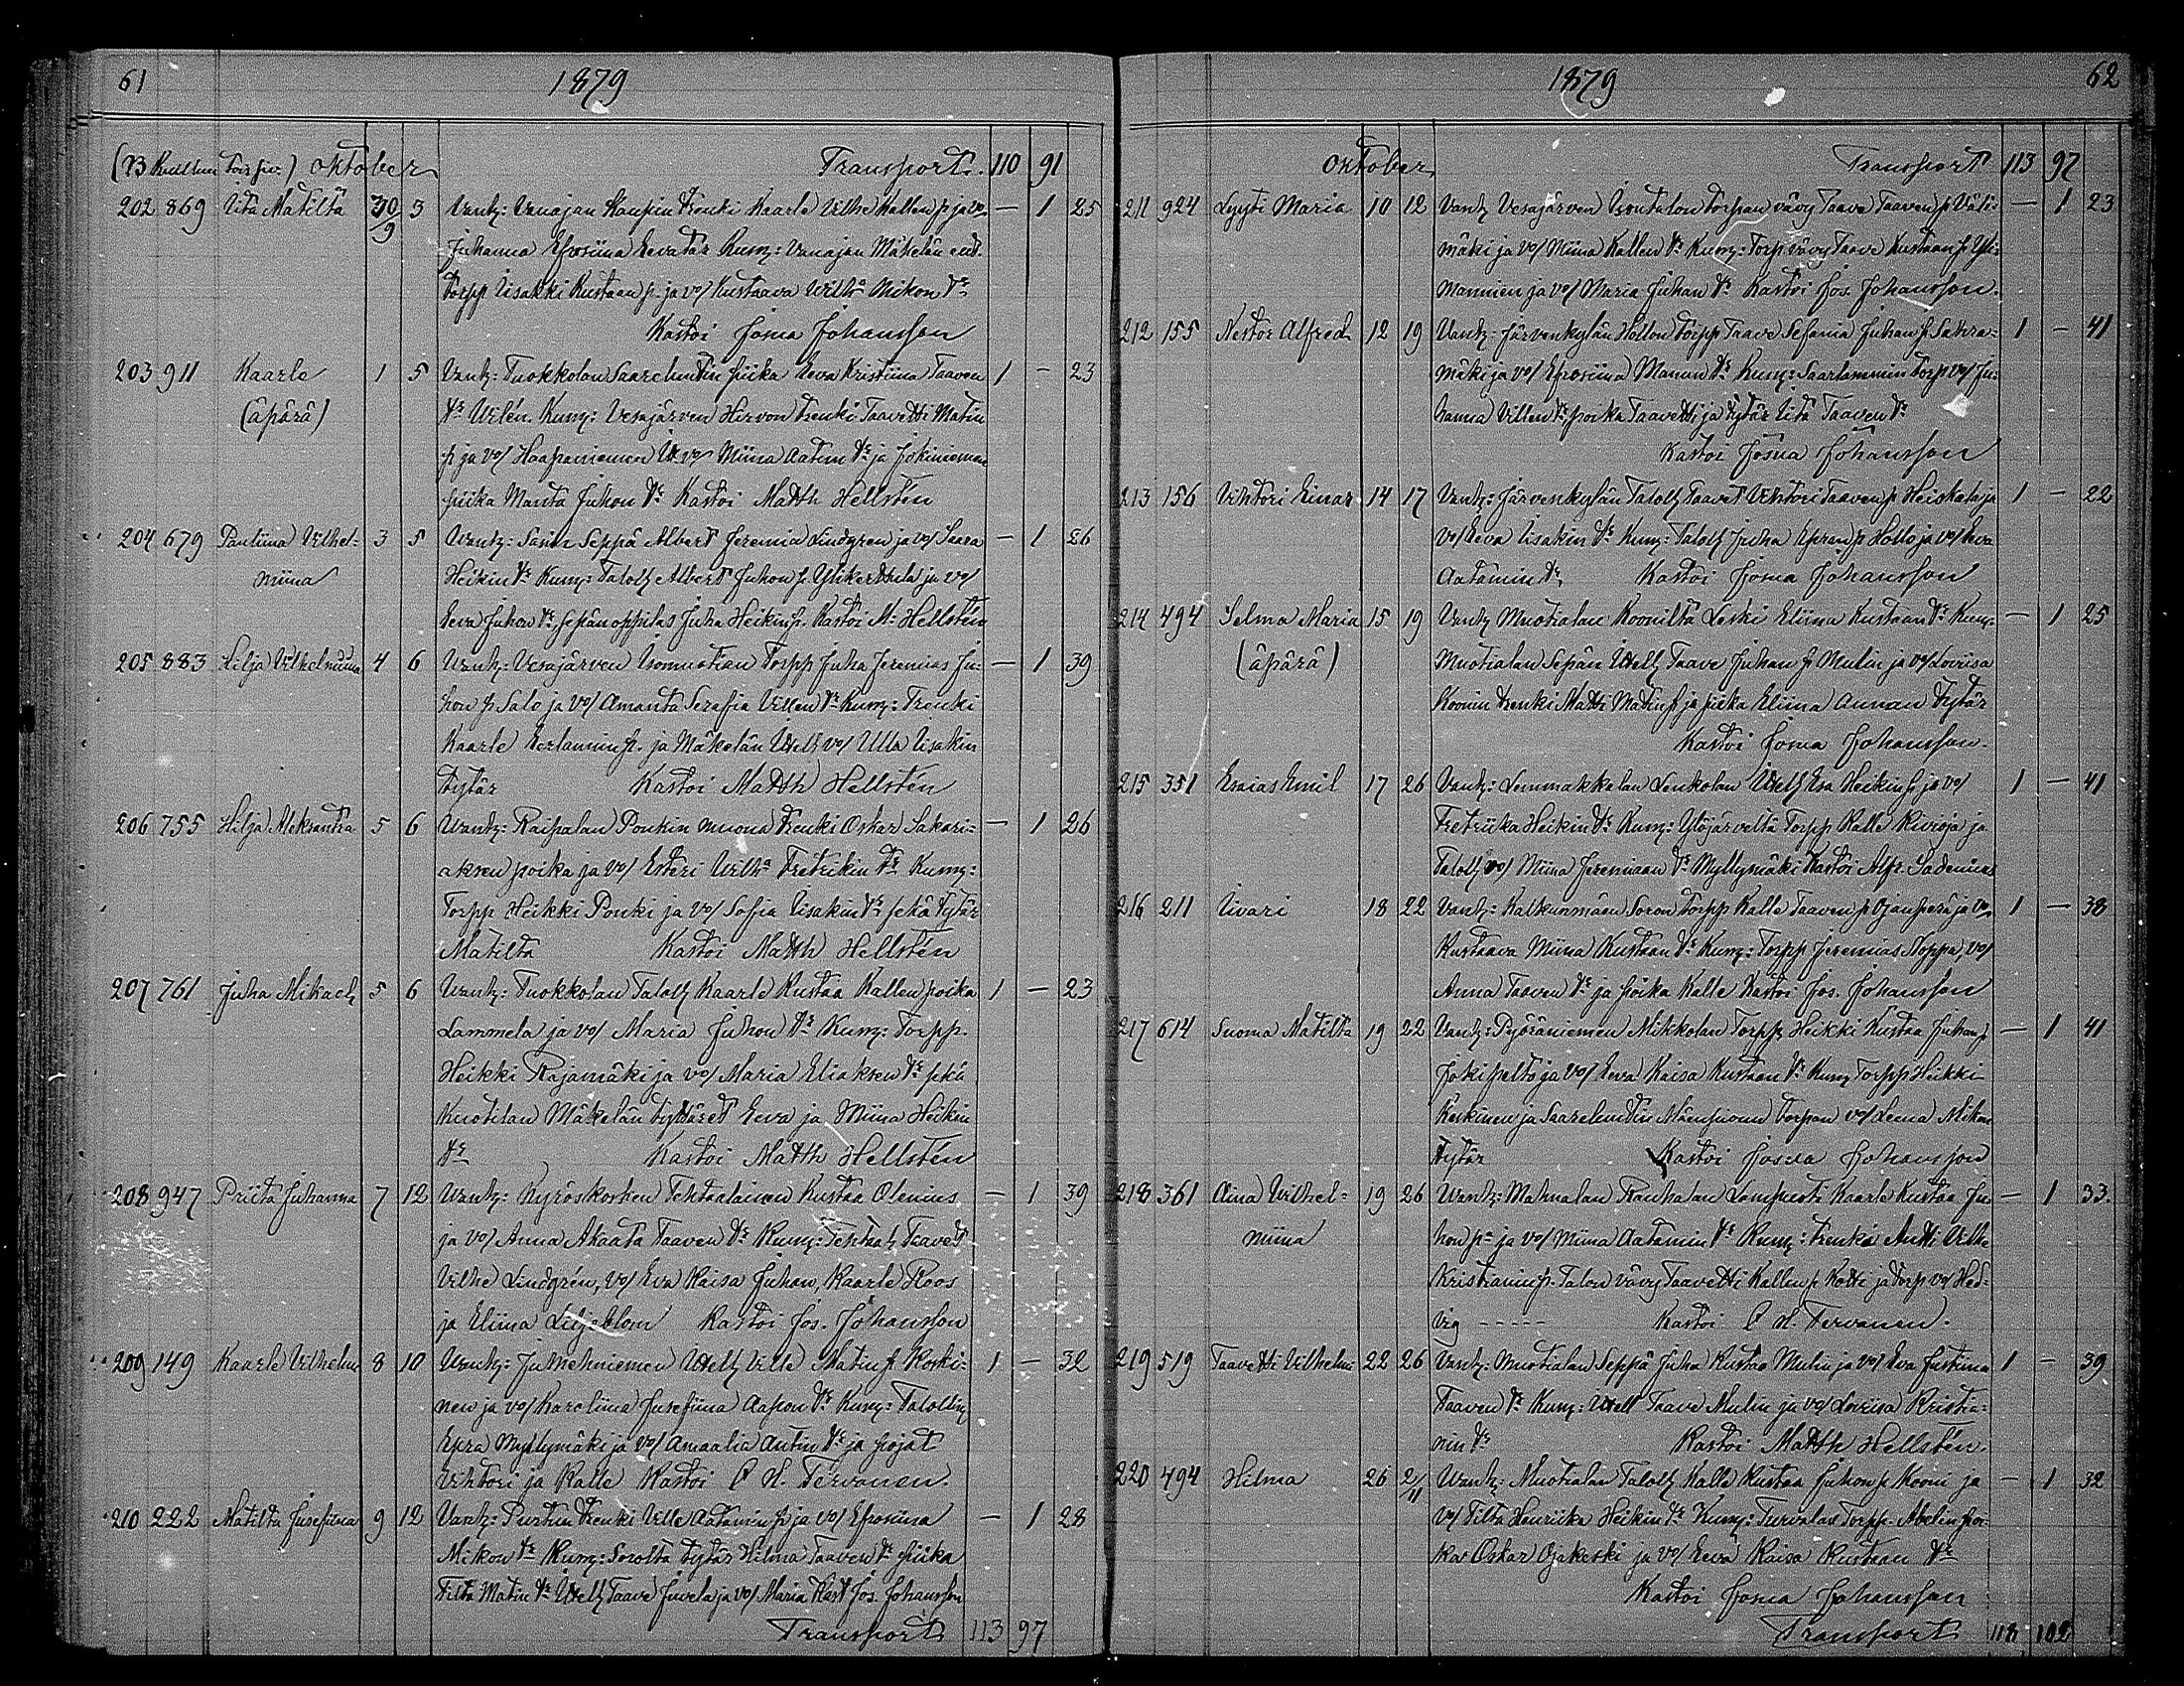 61 1879
(B Kuulun ) Oktober Transport. 110 91
202 869 Iita Matilta 30/9 3 Vanh: Vanajan Kaupin Trenki Kaarle Vilhe Kallen p ja vo — 1 25
Juhanna Efrosiina Eevatär Kum: Vanajan Mäkelän end.
Torpp Iisakki Kustaan p. ja vo/ Kustaava Vilha Mikon tr
Kastoi Josua Johansson
203 911 Kaarle 1 5 Vanh: Tuokkolan Saarelmitin piika Eeva Kristiina Taaven 1 — 23
(äpärä) tr Vilén. Kum: Vesajärven Hirvon Trenki Taavetti Matin
p ja vo/ Haapaniemen Itt vo/ Miina Aatun tr ja Jokiniemen
piika Manta Juhon tr Kastoi Matth Hellstén
204 679 Pauliina Vilhel- 3 5 Vanh: Sasin Seppä Albert Jeremia Lindgren ja vo/ Saara — 1 26
miina Heikin tr Kum: Taloll Albert Juhon p. Ylikerttula ja vo/
Eeva Juhon tr, sepänoppilas Juha Heikin p. Kastoi M. Hellstén
205 883 Hilja Vilhelmiina 4 6 Vanh: Vesajärven Isomuotian Torpp Juha Jeremias Ju- — 1 39
hon p Salo ja vo/ Amanta Serafia Villen tr Kum: Trenki
Kaarle Eerlannin p. ja Mäkelän Itell vo/ Ulla Iisakin
tytär Kastoi Matth Hellstén
206 755 Hilja Aleksantra 5 6 Vanh: Raipalan Ponkin muona Trenki Oskar Sakari- — 1 26
aksen poika ja vo/ Esteri Vilha Fretrikin tr Kum:
Torpp Heikki Ponki ja vo/ Sofia Iisakin tr sekä tytär
Matilta Kastoi Matth Hellstén
207 761 Juha Mikael 5 6 Vanh: Tuokkolan Taloll Kaarle Kustaa Kallen poika 1 — 23
Lammela ja vo/ Maria Juhon tr Kum: Torpp.
Heikki Rajamäki ja vo/ Maria Eliaksen tr sekä
Kuotilan Mäkelän tyttäret Eeva ja Miina Heikin
tr Kastoi Matth Hellstén
208 947 Priita Juhanna 7 12 Vanh: Kyröskosken Tehtaalainen Kustaa Olenius — 1 39
ja vo/ Anna Akaata Taaven tr Kum: Tehtal Taavet
Vilhe Lindgrén, vo/ Eva Kaisa Juhan, Kaarle Roos
ja Eliina Liljeblom Kastoi Jos. Johansson
209 149 Kaarle Vilhelm 8 10 Vanh: Jumehniemen Itell Ville Matin p Koski- 1 — 32
nen ja vo/ Karoliina Jusefiina Aapon tr Kum: Talollin
Epra Myllymäki ja vo/ Amaalia Antin tr ja pojat
Vihtori ja Kalle Kastoi C H. Tervonen.
210 222 Matilta Jusefiina 9 12 Vanh: Purtun Trenki Ville Aatamin p ja vo/ Efrosiina — 1 28
Mikon tr Kum: Sorolta tytär Hilma Taaven tr piika
Tilta Matin tr Itell Taave Juvela ja vo/ Maria Kast Jos. Johansson
Transport 113 97
1879 62
Oktober Transport 113 97
211 924 Lyyti Maria 10 12 Vanh Vesajärven Isontalon torpan vävy Taave Taaven p Väli- — 1 23
mäki ja vo/ Miina Kallen tr Kum: Torp vävy Taave Kustaan p Yli-
Mannien ja vo/ Maria Juhan tr Kastoi Jos. Johansson.
212 155 Nestor Alfred 12 19 Vanh: Järvenkylän Hollon Torpp Taave Sefania Juhan p Sakra- 1 — 41
mäki ja vo/ Efrosiina Manun tr Kum: Saarlammin Torp vo/ Ju-
hanna Villen tr, poika Taavetti ja tytär Iita Taaven tr
Kastoi Josua Johansson
213 156 Vihtori Einar 14 17 Vanh: Järvenkylän Taloll Taavet Vihtori Taaven p Heiskala ja 1 — 22
vo/ Eeva Iisakin tr Kum: Taloll Juha Apram p Hollo ja vo/ Eeva
Aatamin tr Kastoi Josua Johansson
214 494 Selma Maria 15 19 Vanh Muotialan Koonilta Leski Eliina Kustaan tr Kum: — 1 25
(äpärä) Muotialan Sepän Itell Taave Juhan p Mulin ja vo/ Loviisa
Koonin trenki Matti Matin p ja piika Eliina Annan tytär
Kastoi Josua Johansson.
215 351 Esaias Emil 17 26 Vanh: Lemmakkalan Lenkolan Itell Esa Heikin p ja vo/ 1 — 41
Fretriika Heikin tr Kum: Ylöjärveltä Torpp Kalle Kivioja ja
Taloll vo/ Miina Jeremiaan tr Myllymäki Kastoi Alfr. Sadenius
216 211 Iivari 18 22 Vanh: Kalkunmäen Soron Torpp Kalle Taaven p Ojanperä ja vo/ 1 — 38
Kustaava Miina Kustaan tr Kum: Torpp Jeremias Noppa, vo/
Anna Taaven tr ja poika Kalle Kastoi Jos. Johansson
217 614 Suoma Matilta 19 22 Vanh: Pyöräniemen Mikkolan Torpp Heikki Kustaa Juhan p — 1 41
Jokipelto ja vo/ Eeva Kaisa Kustaan tr Kum Torpp Heikki
Keskinen ja Saarelmitin Mäensuonn torpan vo/ Leena Mikon
tytär Kastoi Josua Johansson
218 361 Aina Vilhel- 19 26 Vanh: Mahnalan Rauhalan Lampuoti Kaarle Kustaa Ju- — 1 33.
miina hon pa ja vo/ Miina Aatamin tr Kum: Trenki Antti Vilhe
Kristianin p. Talon vävy Taavetti Kallen p Kotti ja Torp vo/ Hed-
vig - - - - - Kastoi C H. Tervonen.
219 519 Taavetti Vilhelmi 22 26 Vanh: Muotialan Seppä Juha Kustaa Mulin ja vo/ Eva Justiina 1 — 39
Taaven tr Kum: Itell Taave Mulin ja vo/ Loviisa Kristia-
nin tr Kastoi Matth Hellstén.
220 494 Hilma 26 2/11 Vanh: Muotialan Taloll Kalle Kustaa Juhon p Kooni ja — 1 32
vo/ Tilta Henriika Heikin tr Kum: Turvalas Torpp. Abelin poi-
ka Oskar Ojakeski ja vo/ Eeva Kaisa Kustaan tr
Kastoi Josua Johansson
Transport 118 102